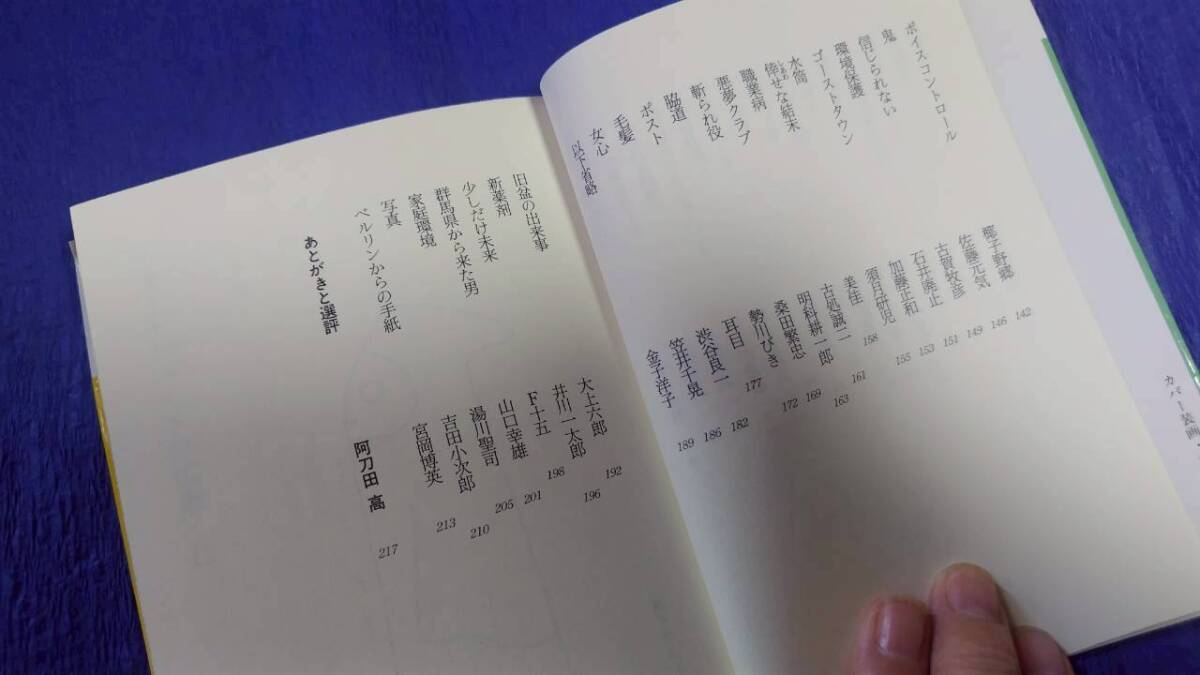 カバー装画
ボイスコントロール 椰子野郷 142
鬼 佐藤元気 146
信じられない 古賀牧彦 149
環境保護 石井廃止 151
ゴーストタウン 加藤正和 153
水筒 須月研児 155
倖せな結末 美佳 158
職業病 古処誠二 161
悪夢クラブ 明科耕一郎 163
斬られ役 桑田繁忠 169
脇道 勢川びき 172
ポスト 耳目 177
毛髪 渋谷良一 182
女心 笠井千晃 186
以下省略 金子洋子 189
旧盆の出来事 大上六郎 192
新薬剤 井川一太郎 196
少しだけ未来 F十五 198
群馬県から来た男 山口幸雄 201
家庭環境 湯川聖司 205
写真 吉田小次郎 210
ベルリンからの手紙 宮岡博英 213
あとがきと選評 阿刀田 高 217